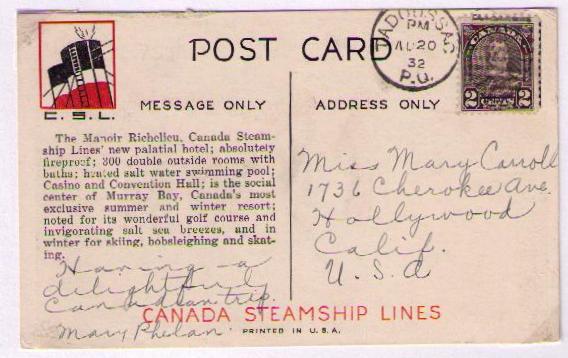 POST CARD
TADOUSSAC
PM
AU 20
32
P.Q.
CANADA
2 2
C.S.L.
MESSAGE ONLY
ADDRESS ONLY
The Manoir Richelieu, Canada Steam-
ship Lines' new palatial hotel; absolutely
fireproof; 300 double outside rooms with
baths; heated salt water swimming pool;
Casino and Convention Hall; is the social
center of Murray Bay, Canada's most
exclusive summer and winter resort;
noted for its wonderful golf course and
invigorating salt sea breezes, and in
winter for skiing, bobsleighing and skat-
ing.
Having a
delightful
Canadian trip.
Mary Phelan
Miss Mary Carroll
1736 Cherokee Ave.
Hollywood
Calif.
U.S.A
CANADA STEAMSHIP LINES
PRINTED IN U.S.A.